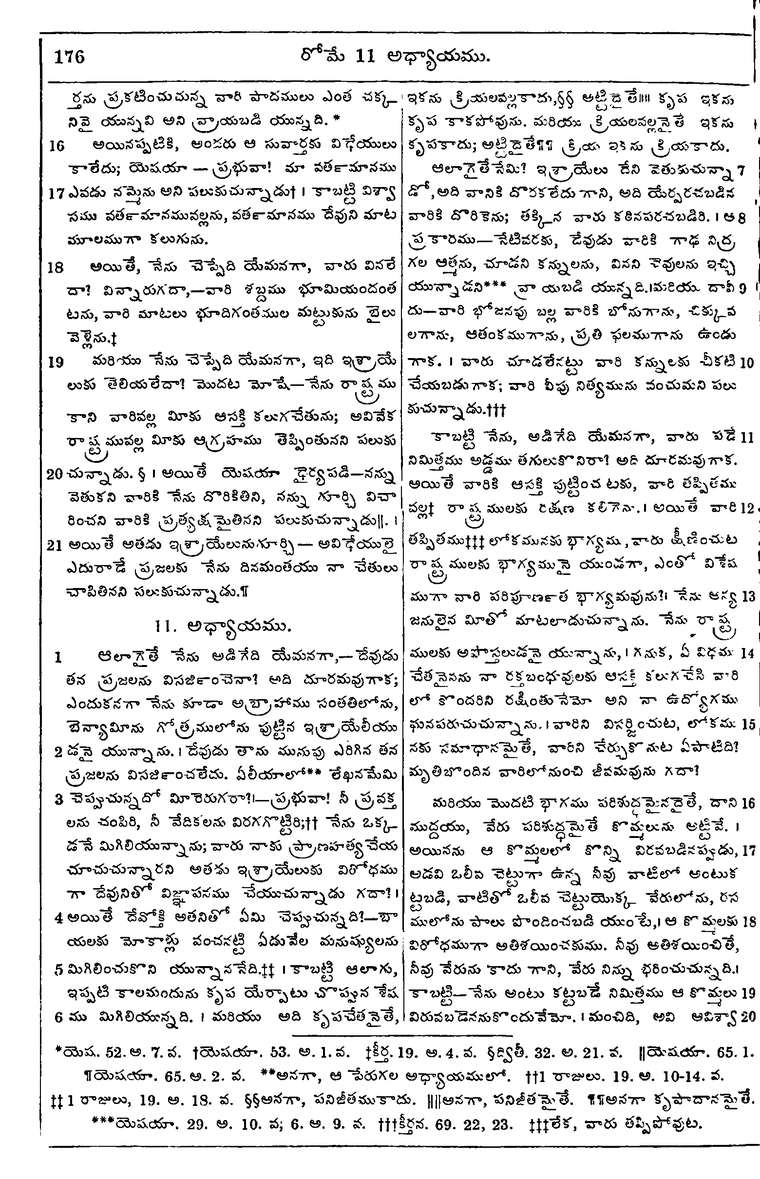 176 రోమే 11 అధ్యాయము.
ర్తను ప్రకటించుచున్న వారి పాదములు ఎంత చక్క
నివై యున్నవి అని వ్రాయబడి యున్నది. *
16 అయినప్పటికి, అందరు ఆ సువార్తకు విధేయులు
కాలేదు; యెషయా — ప్రభువా! మా వర్తమానము
17 ఎవడు నమ్మెను అని పలుకుచున్నాడు† । కాబట్టి విశ్వా
సము వర్తమానమువల్లను, వర్తమానము దేవుని మాట
మూలముగా కలుగును.
18 అయితే, నేను చెప్పేది యేమనగా, వారు వినలే
దా? విన్నారుగదా,—వారి శబ్దము భూమియందంత
టను, వారి మాటలు భూదిగంతముల మట్టుకును బైలు
వెళ్లెను.‡
19 మరియు నేను చెప్పేది యేమనగా, ఇది ఇశ్రాయే
లుకు తెలియలేదా? మొదట మోషే—నేను రాష్ట్రము
కాని వారివల్ల మీకు ఆసక్తి కలుగచేతును; అవివేక
రాష్ట్రమువల్ల మీకు ఆగ్రహము తెప్పింతునని పలుకు
20 చున్నాడు. § । అయితే యెషయా ధైర్యపడి—నన్ను
వెతుకని వారికి నేను దొరికితిని, నన్ను గూర్చి విచా
రించని వారికి ప్రత్యక్షమైతినని పలుకుచున్నాడు‖. ।
21 అయితే అతడు ఇశ్రాయేలునుగూర్చి — అవిధేయులై
ఎదురాడే ప్రజలకు నేను దినమంతయు నా చేతులు
చాపితినని పలుకుచున్నాడు.¶
11. అధ్యాయము.
1 ఆలాగైతే నేను అడిగేది యేమనగా,— దేవుడు
తన ప్రజలను విసర్జించెనా? అది దూరమవుగాక;
ఎందుకనగా నేను కూడా అబ్రాహాము సంతతిలోను,
బెన్యామీను గోత్రములోను పుట్టిన ఇశ్రాయేలీయు
2 డనై యున్నాను. । దేవుడు తాను మునుపు ఎరిగిన తన
ప్రజలను విసర్జించలేదు. ఏలీయాలో** లేఖనమేమి
3 చెప్పుచున్నదో మీరెరుగరా?।—ప్రభువా! నీ ప్రవక్త
లను చంపిరి, నీ వేదికలను విరగగొట్టిరి;†† నేను ఒక్క
డనే మిగిలియున్నాను; వారు నాకు ప్రాణహత్య చేయ
చూచుచున్నారని అతడు ఇశ్రాయేలుకు విరోధము
గా దేవునితో విజ్ఞాపనము చేయుచున్నాడు గదా?।
4 అయితే దేవోక్తి అతనితో ఏమి చెప్పుచున్నది?—బా
యలకు మోకాళ్లు వంచనట్టి ఏడువేల మనుష్యులను
5 మిగిలించుకొని యున్నాననేది.‡‡ । కాబట్టి ఆలాగు,
ఇప్పటి కాలమందును కృప యేర్పాటు చొప్పున శేష
6 ము మిగిలియున్నది. । మరియు అది కృపచేతనైతే,
ఇకను క్రియలవల్లకాదు,§§ అట్టిదైతే‖‖ కృప ఇకను
కృప కాకపోవును. మరియు క్రియలవల్లనైతే ఇకను
కృపకాదు; అట్టిదైతే¶¶ క్రియ ఇకను క్రియకాదు.
ఆలాగైతేనేమి? ఇశ్రాయేలు దేని వెతుకుచున్నా 7
డో, అది వానికి దొరకలేదు గాని, అది యేర్పరచబడిన
వారికి దొరికెను; తక్కిన వారు కఠినపరచబడిరి. । ఆ 8
ప్రకారము—నేటివరకు, దేవుడు వారికి గాఢ నిద్ర
గల ఆత్మను, చూడని కన్నులను, వినని చెవులను ఇచ్చి
యున్నాడని*** వ్రాయబడి యున్నది.।మరియు దావీ 9
దు—వారి భోజనపు బల్ల వారికి బోనుగాను, చిక్కువ
లగాను, ఆతంకముగాను, ప్రతి ఫలముగాను ఉండు
గాక. । వారు చూడలేనట్టు వారి కన్నులకు చీకటి 10
చేయబడుగాక; వారి వీపు నిత్యమును వంచుమని పలు
కుచున్నాడు.†††
కాబట్టి నేను, అడిగేది యేమనగా, వారు పడే 11
నిమిత్తము అడ్డము తగులుకొనిరా? అది దూరమవుగాక.
అయితే వారికి ఆసక్తి పుట్టించుటకు, వారి తప్పితము
వల్ల‡ రాష్ట్రములకు రక్షణ కలిగెను.। అయితే వారి 12
తప్పితము‡‡‡ లోకమునకు భాగ్యము, వారు క్షీణించుట
రాష్ట్రములకు భాగ్యమునై యుండగా, ఎంతో విశేష
ముగా వారి పరిపూర్ణత భాగ్యమవును?। నేను అన్య 13
జనులైన మీతో మాటలాడుచున్నాను. నేను రాష్ట్ర
ములకు అపొస్తలుడనై యున్నాను, । గనుక, ఏ విధము 14
చేతనైనను నా రక్తబంధువులకు ఆసక్తి కలుగచేసి వారి
లో కొందరిని రక్షింతునేమో అని నా ఉద్యోగము
ఘనపరుచుచున్నాను. । వారిని విసర్జించుట, లోకము 15
నకు సమాధానమైతే, వారిని చేర్చుకొనుట ఏపాటిది?
మృతిబొందిన వారిలోనుంచి జీవమవును గదా?
మరియు మొదటి భాగము పరిశుద్ధమైనదైతే, దాని 16
ముద్దయు, వేరు పరిశుద్ధమైతే కొమ్మలును అట్టివే. ।
అయినను ఆ కొమ్మలలో కొన్ని విరవబడినప్పుడు, 17
అడవి ఒలీవ చెట్టుగా ఉన్న నీవు వాటిలో అంటుక
ట్టబడి, వాటితో ఒలీవ చెట్టుయొక్క వేరులోను, రస
ములోను పాలు పొందించబడి యుంటే, । ఆ కొమ్మలకు 18
విరోధముగా అతిశయించకుము. నీవు అతిశయించితే,
నీవు వేరును కాదు గాని, వేరు నిన్ను భరించుచున్నది.।
కాబట్టి— నేను అంటు కట్టబడే నిమిత్తము ఆ కొమ్మలు 19
విరువబడెననుకొందువేమో. । మంచిది, అవి ఆవిశ్వా 20
*యెష. 52. అ. 7. వ. †యెషయా. 53. అ. 1. వ. ‡కీర్త. 19. అ. 4. వ. §ద్వితీ. 32. అ. 21. వ. ‖యెషయా. 65. 1.
¶యెషయా. 65. అ. 2. వ. **అనగా, ఆ పేరుగల అధ్యాయములో. ††1 రాజులు. 19. అ. 10-14. వ.
‡‡ 1 రాజులు, 19. అ. 18. వ. §§అనగా, పనిజీతముకాదు. ‖‖అనగా, పనిజీతమైతే. ¶¶అనగా కృపాదానమైతే.
***యెషయా. 29. అ. 10. వ; 6. అ. 9. వ. †††కీర్తన. 69. 22, 23. ‡‡‡లేక, వారు తప్పిపోవుట.